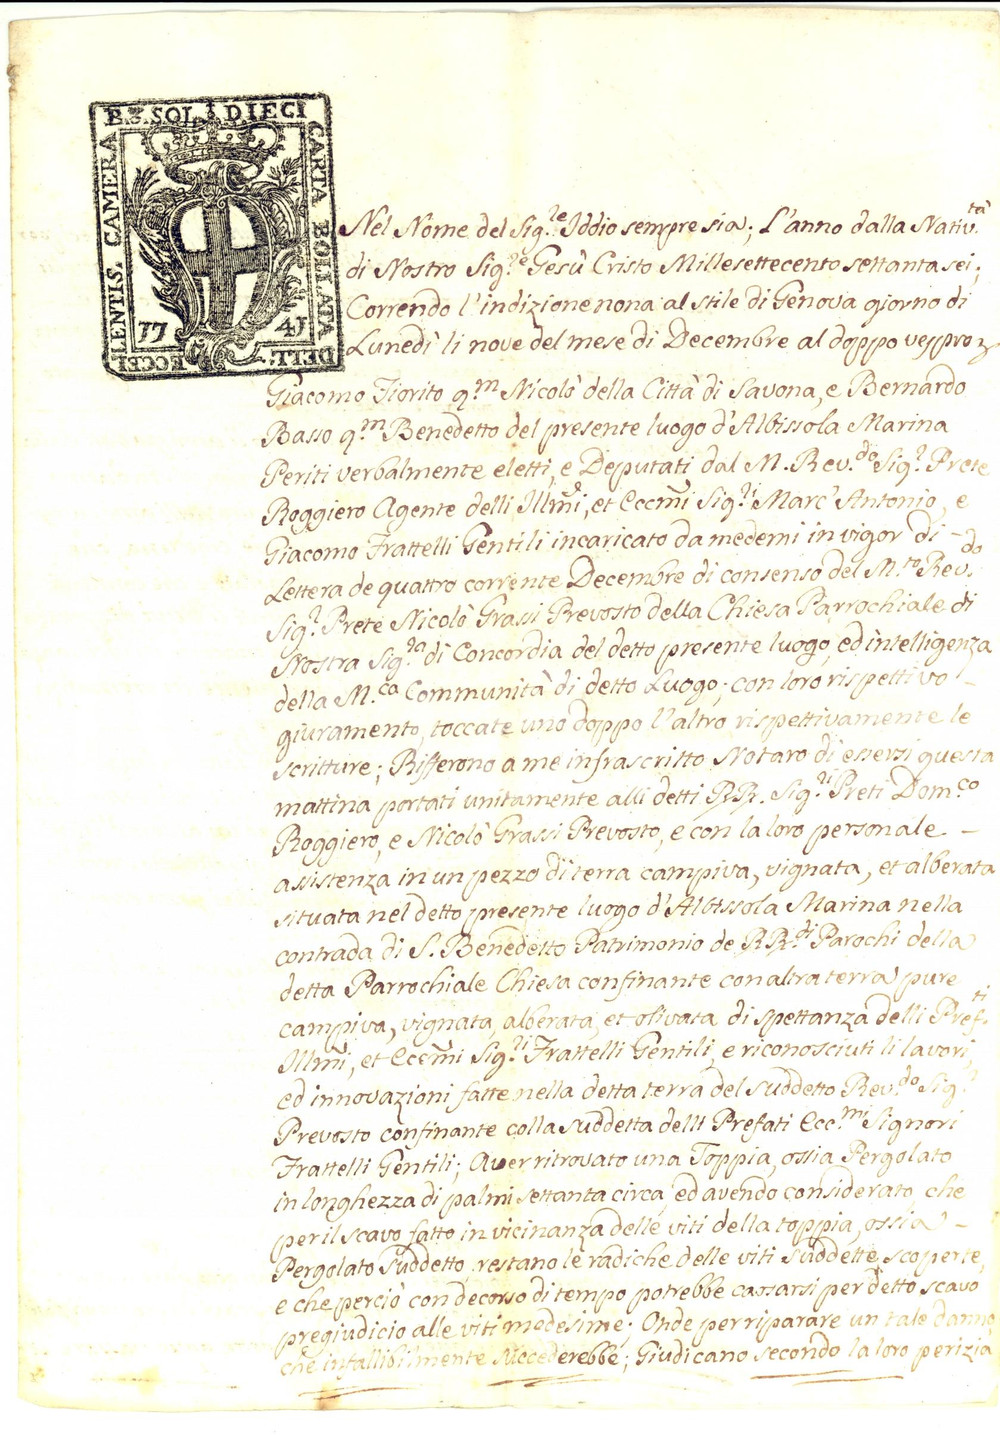 B. SOL. DIECI
CARTA BOLLATA
DELL'. ECCEL
LENTIS. CAMERA
17 41
Nel Nome del Sig.re Iddio sempre sia; L'anno dalla Nativ.tà
di Nostro Sig.re Gesù Cristo Millesettecento settanta sei;
Correndo l'indizione nona al stile di Genova giorno di
Lunedì li nove del mese di Decembre al doppo vespro
Giacomo Fiorito q.m Nicolò della Città di Savona, e Bernardo
Basso q.m Benedetto del presente luogo d'Albissola Marina
Periti verbalmente eletti, e Deputati dal M. Rev.do Sig.r Prete
Roggiero Agente delli Illmi, et Eccmi Sig.ri Marc'Antonio, e
Giacomo Frattelli Gentili incaricato da medemi in vigor di -
Lettera de quattro corrente Decembre di consenso del M.to Rev.do
Sig.r Prete Nicolò Grassi Prevosto della Chiesa Parrochiale di
Nostra Sig.ra di Concordia del detto presente luogo, ed intelligenza
della M.ca Communità di detto Luogo; con loro rispettivo -
giuramento, toccate uno doppo l'altro rispettivamente le
scritture; Rifferono a me infrascritto Notaro di essersi questa
mattina portati unitamente alli detti RR. Sig.ri Preti Dom.co
Roggiero, e Nicolò Grassi Prevosto, e con la loro personale -
assistenza in un pezzo di terra campiva, vignata, et alberata
situata nel detto presente luogo d'Albissola Marina nella
contrada di S. Benedetto Patrimonio de RR.di Parochi della
detta Parrochiale Chiesa confinante con altra terra pure
campiva, vignata, alberata, et olivata di spettanza delli Pref.ti
Illmi, et Eccmi Sig.ri Frattelli Gentili, e riconosciuti li lavori,
ed innovazioni fatte nella detta terra del suddetto Rev.do Sig.r
Prevosto confinante colla suddetta delli Prefati Ecc.mi Signori
Frattelli Gentili; Aver ritrovato una Toppia, ossia Pergolato
in longhezza di palmi settanta circa, ed avendo considerato, che
per il scavo fatto in vicinanza delle viti della toppia, ossia -
Pergolato suddetto, restano le radiche delle viti suddette scoperte,
e che perciò con decorso di tempo potrebbe cassarsi per detto scavo
pregiudicio alle viti medesime; Onde per riparare un tale danno,
che infallibilmente succederebbe; Giudicano secondo la loro perizia